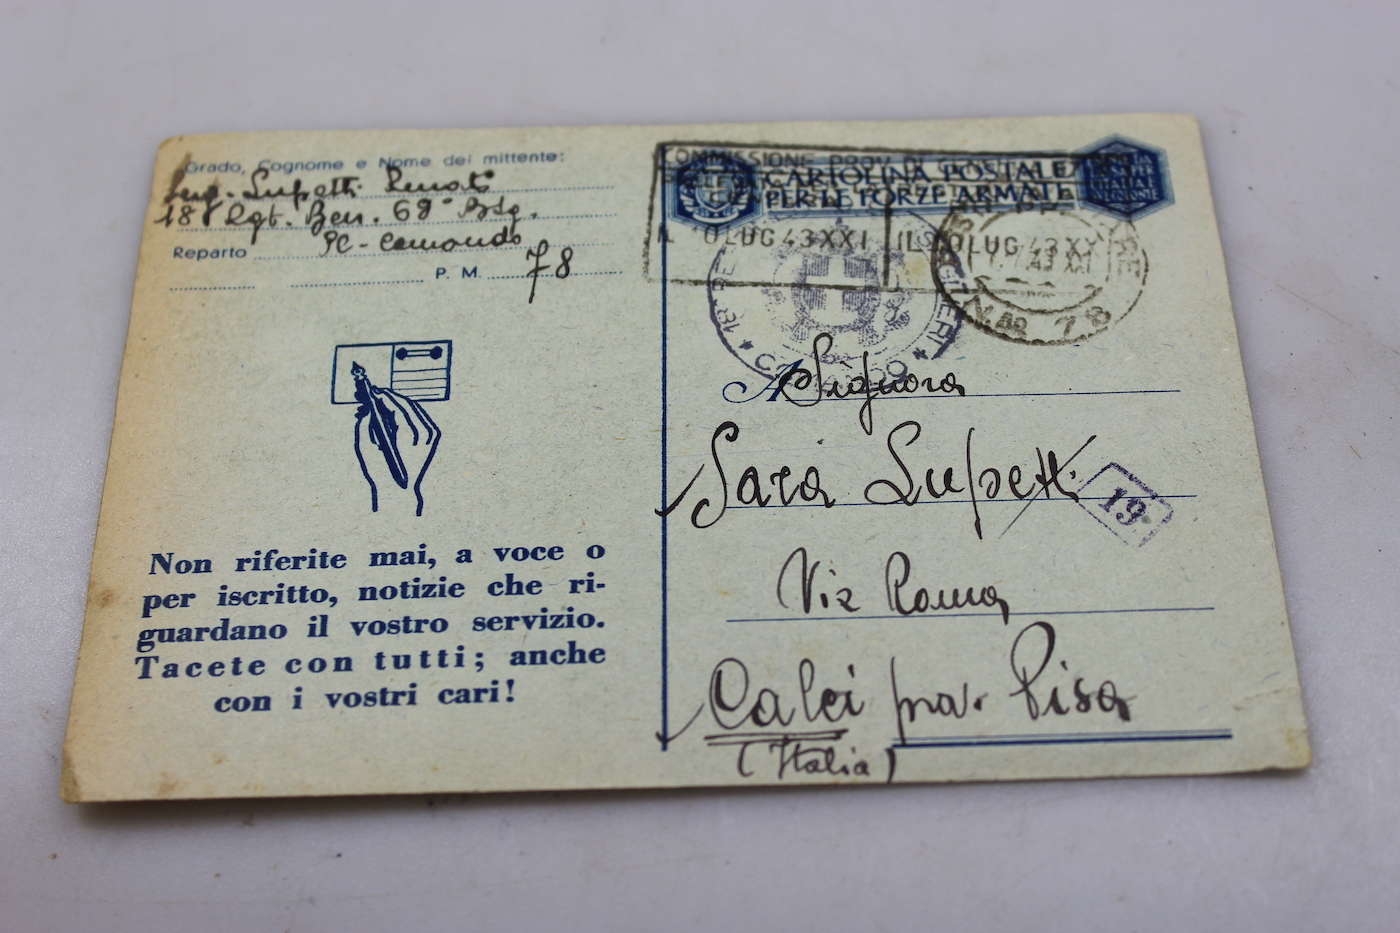 Grado, Cognome e Nome del mittente:
Lupetti Renato
18° Rgt. Ber. 68° Btg.
Reparto
PC - Comando
P. M. 78
Non riferite mai, a voce o
per iscritto, notizie che ri-
guardano il vostro servizio.
Tacete con tutti; anche
con i vostri cari!
COMMISSIONE PROV. DI
CARTOLINA POSTALE
PER LE FORZE ARMATE
10 LUG 43 XXI IL 10 LUG 43 XX
78
A Signora
Sara Lupetti
19
Via Roma
Calci prov. Pisa
(Italia)